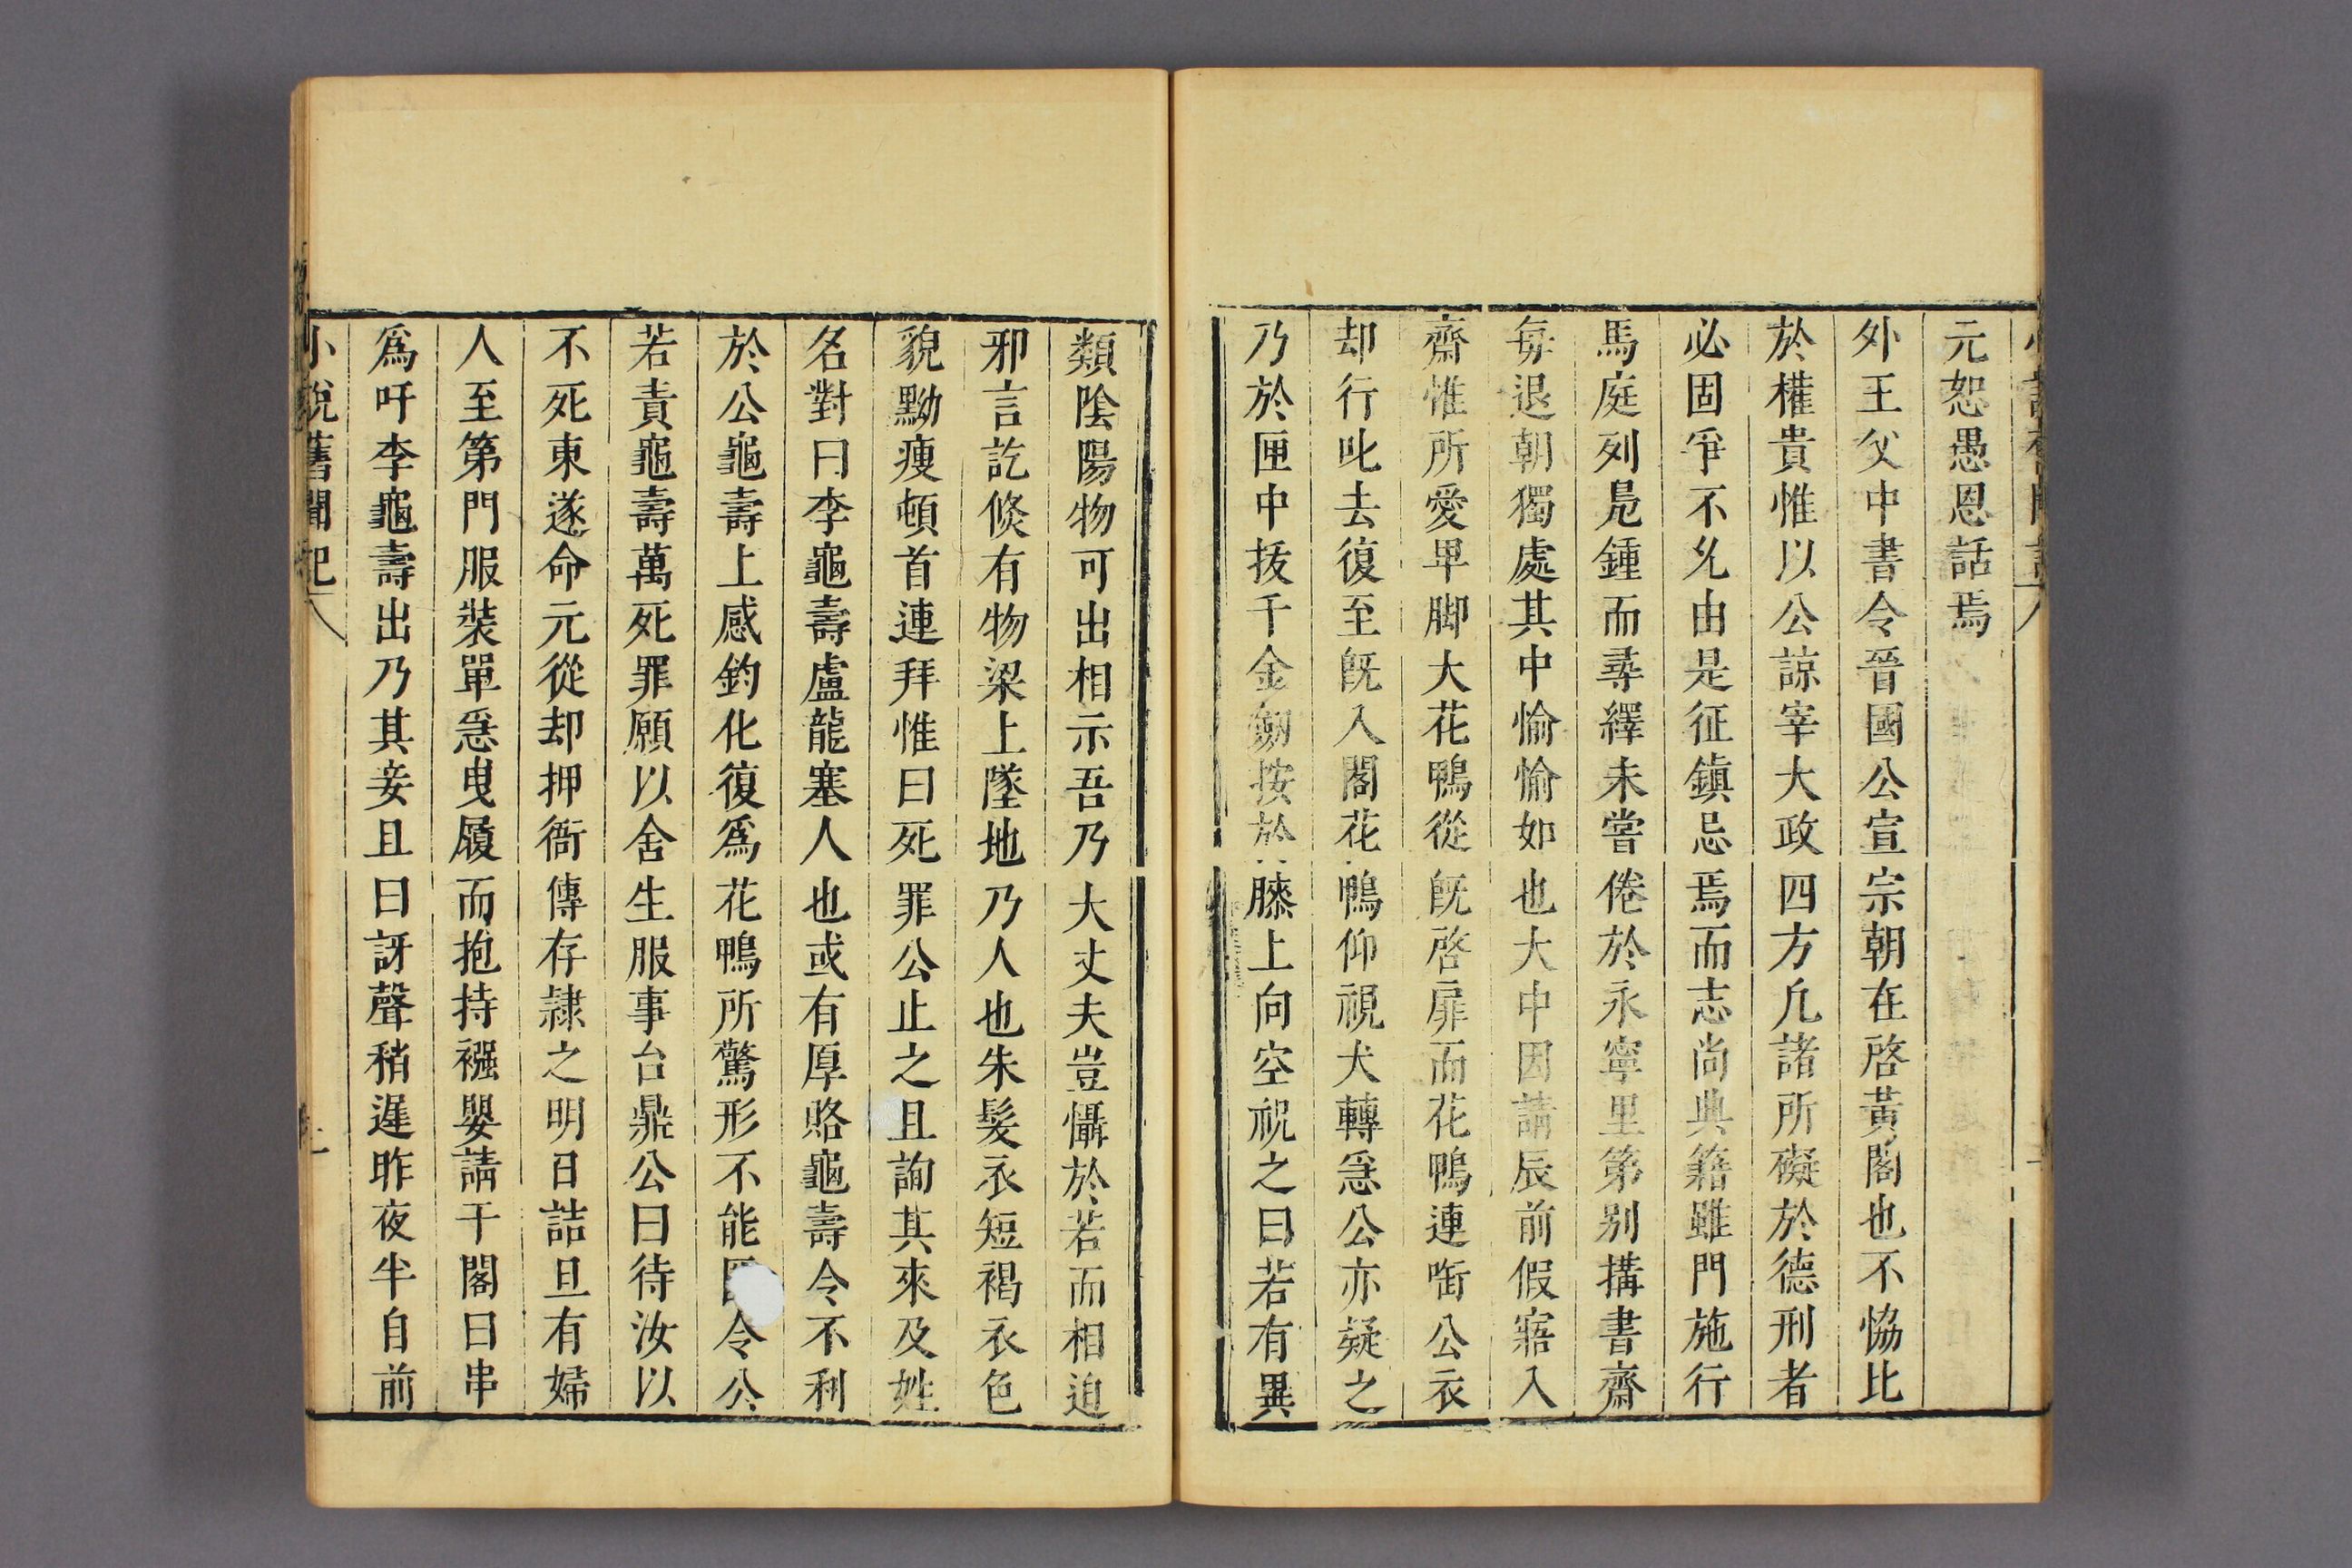 元恕愚恩話焉
外王父中書令晉國公宣宗朝在啓黃閣也不恊比
於權貴惟以公諒宰大政四方凡諸所礙於德刑者
必固爭不允由是征鎮忌焉而志尚典籍雖門施行
馬庭列鳧鍾而尋繹未嘗倦於永寧里第别搆書齋
每退朝獨處其中愉愉如也大中因請辰前假寤入
齋惟所愛卑脚犬花鴨從旣啓扉而花鴨連啣公衣
却行叱去復至旣入閣花鴨仰視犬轉急公亦疑之
乃於匣中拔千金劒按於膝上向空祝之曰若有異
類陰陽物可出相示吾乃大丈夫豈懾於若而相迫
邪言訖倐有物梁上墜地乃人也朱髮衣短褐衣色
貌黝瘦頓首連拜惟曰死罪公止之且詢其來及姓
名對曰李龜壽盧龍塞人也或有厚賂龜壽令不利
於公龜壽上感鈞化復爲花鴨所驚形不能匿令公
若責龜壽萬死罪願以舍生服事台鼎公曰待汝以
不死東遂命元從却押衙傳存隷之明日詰旦有婦
人至第門服裝單急曳履而抱持襁嬰請干閣曰串
爲吁李龜壽出乃其妾且曰訝聲稍遲昨夜半自前
小說舊聞記 八